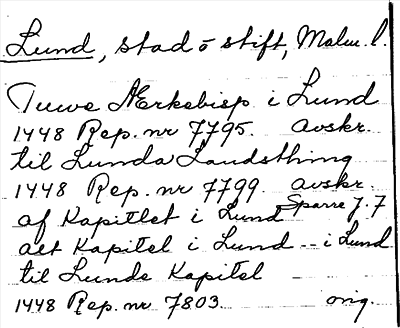 Lund, stad o stift, Malm. l.
Tuwe Ærkebisp i Lund
1448 Rep. nr 7795. avskr.
til Lunda Landsthing
1448 Rep. nr 7799. avskr.
af Kapitlet i Lund Sparre J. 7
alt Kapitel i Lund -- i Lund
til Lunde Kapitel
1448 Rep. nr 7803. orig.